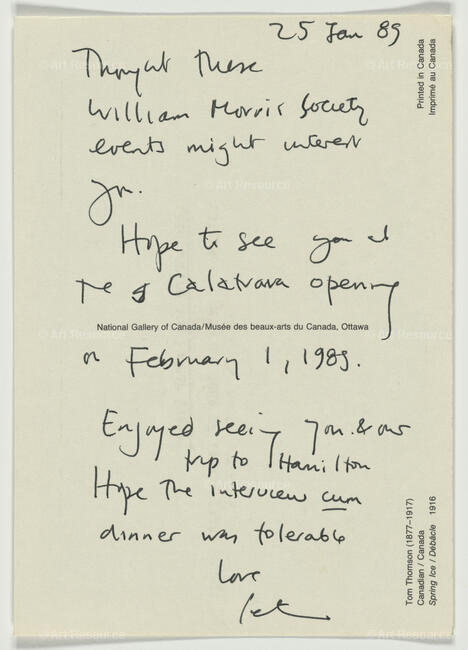 25 Jan 89
Thought these
William Morris Society
events might interest
you.
Hope to see you at
the Calatrava opening
National Gallery of Canada/Musée des beaux-arts du Canada, Ottawa
on February 1, 1989.
Enjoyed seeing you & our
trip to Hamilton
Hope the interview cum
dinner was tolerable
Love
Printed in Canada
Imprimé au Canada
Tom Thomson (1877–1917)
Canadian / Canada
Spring Ice / Débâcle 1916
© Art Resource